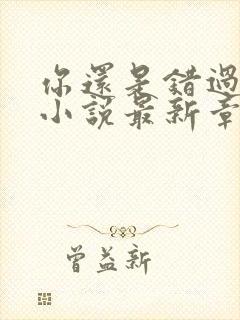 你還是錯過
小說最新章
曾益新